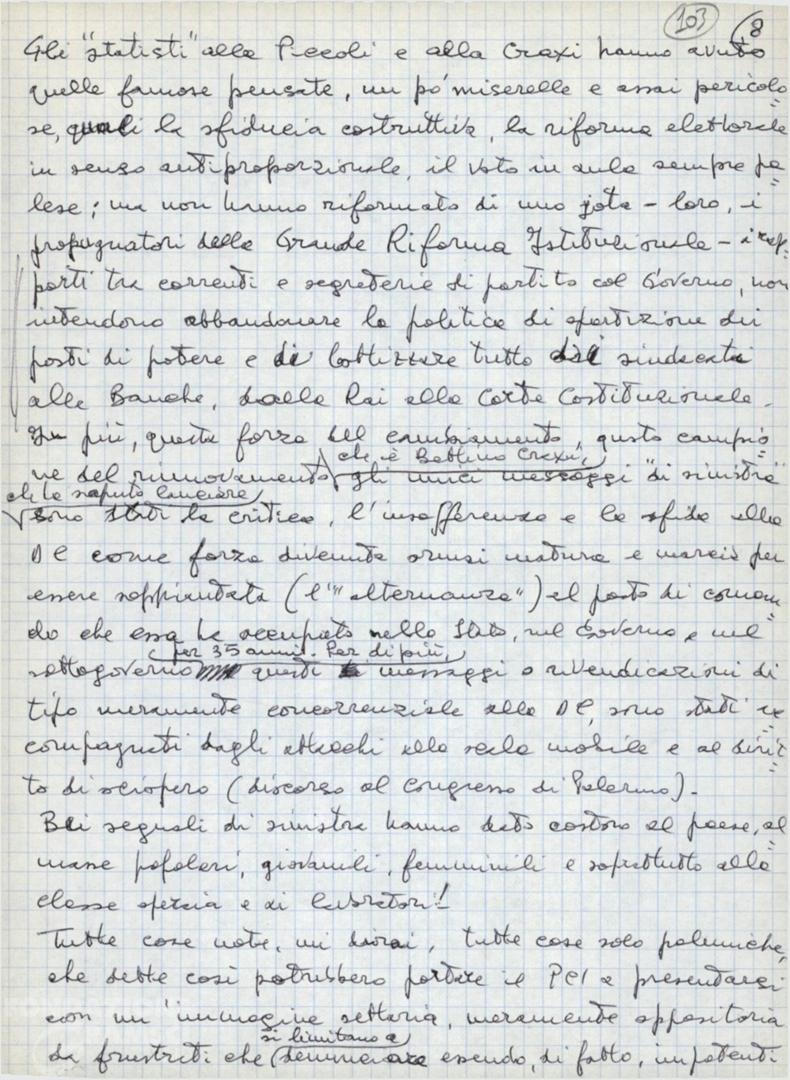 103 8
Gli "statisti" alla Piccoli e alla Craxi hanno avuto
quelle famose pensate, un po' miserelle e assai pericolo=
se, quali la sfiducia costruttiva, la riforma elettorale
in senso antiproporzionale, il voto in aula sempre pa=
lese; ma non hanno riformato di uno jota - loro, i
propugnatori della Grande Riforma Istituzionale - i rap=
porti tra correnti e segreterie di partito col Governo, non
intendono abbandonare la politica di spartizione dei
posti di potere e di lottizzare tutto dai sindacati
alle Banche, dalla Rai alla Corte Costituzionale.
In più, questa forza del cambiamento, questo campio=
che è Bettino Craxi,
ne del rinnovamento gli unici messaggi "di sinistra"
che ha saputo lanciare
sono stati la critica, l'insofferenza e la sfida alla
DC come forza divenuta ormai matura e marcia per
essere soppiantata (l'"alternanza") al posto di coman=
do che essa ha occupato nello Stato, nel Governo e nel
per 35 anni. Per di più,
sottogoverno questi messaggi o rivendicazioni di
tipo meramente concorrenziale alla DC, sono stati ac=
compagnati dagli attacchi alla scala mobile e al dirit=
to di sciopero (discorso al Congresso di Palermo).
Bei segnali di sinistra hanno dato costoro al paese, al=
masse popolari, giovanili, femminili e soprattutto alla
classe operaia e ai lavoratori!
Tutte cose note, mi dirai, tutte cose solo polemiche,
che dette così potrebbero portare il PCI a presentarsi
con un'immagine settaria, meramente oppositoria
si limitano a
da frustrati che denunciare essendo, di fatto, impotenti